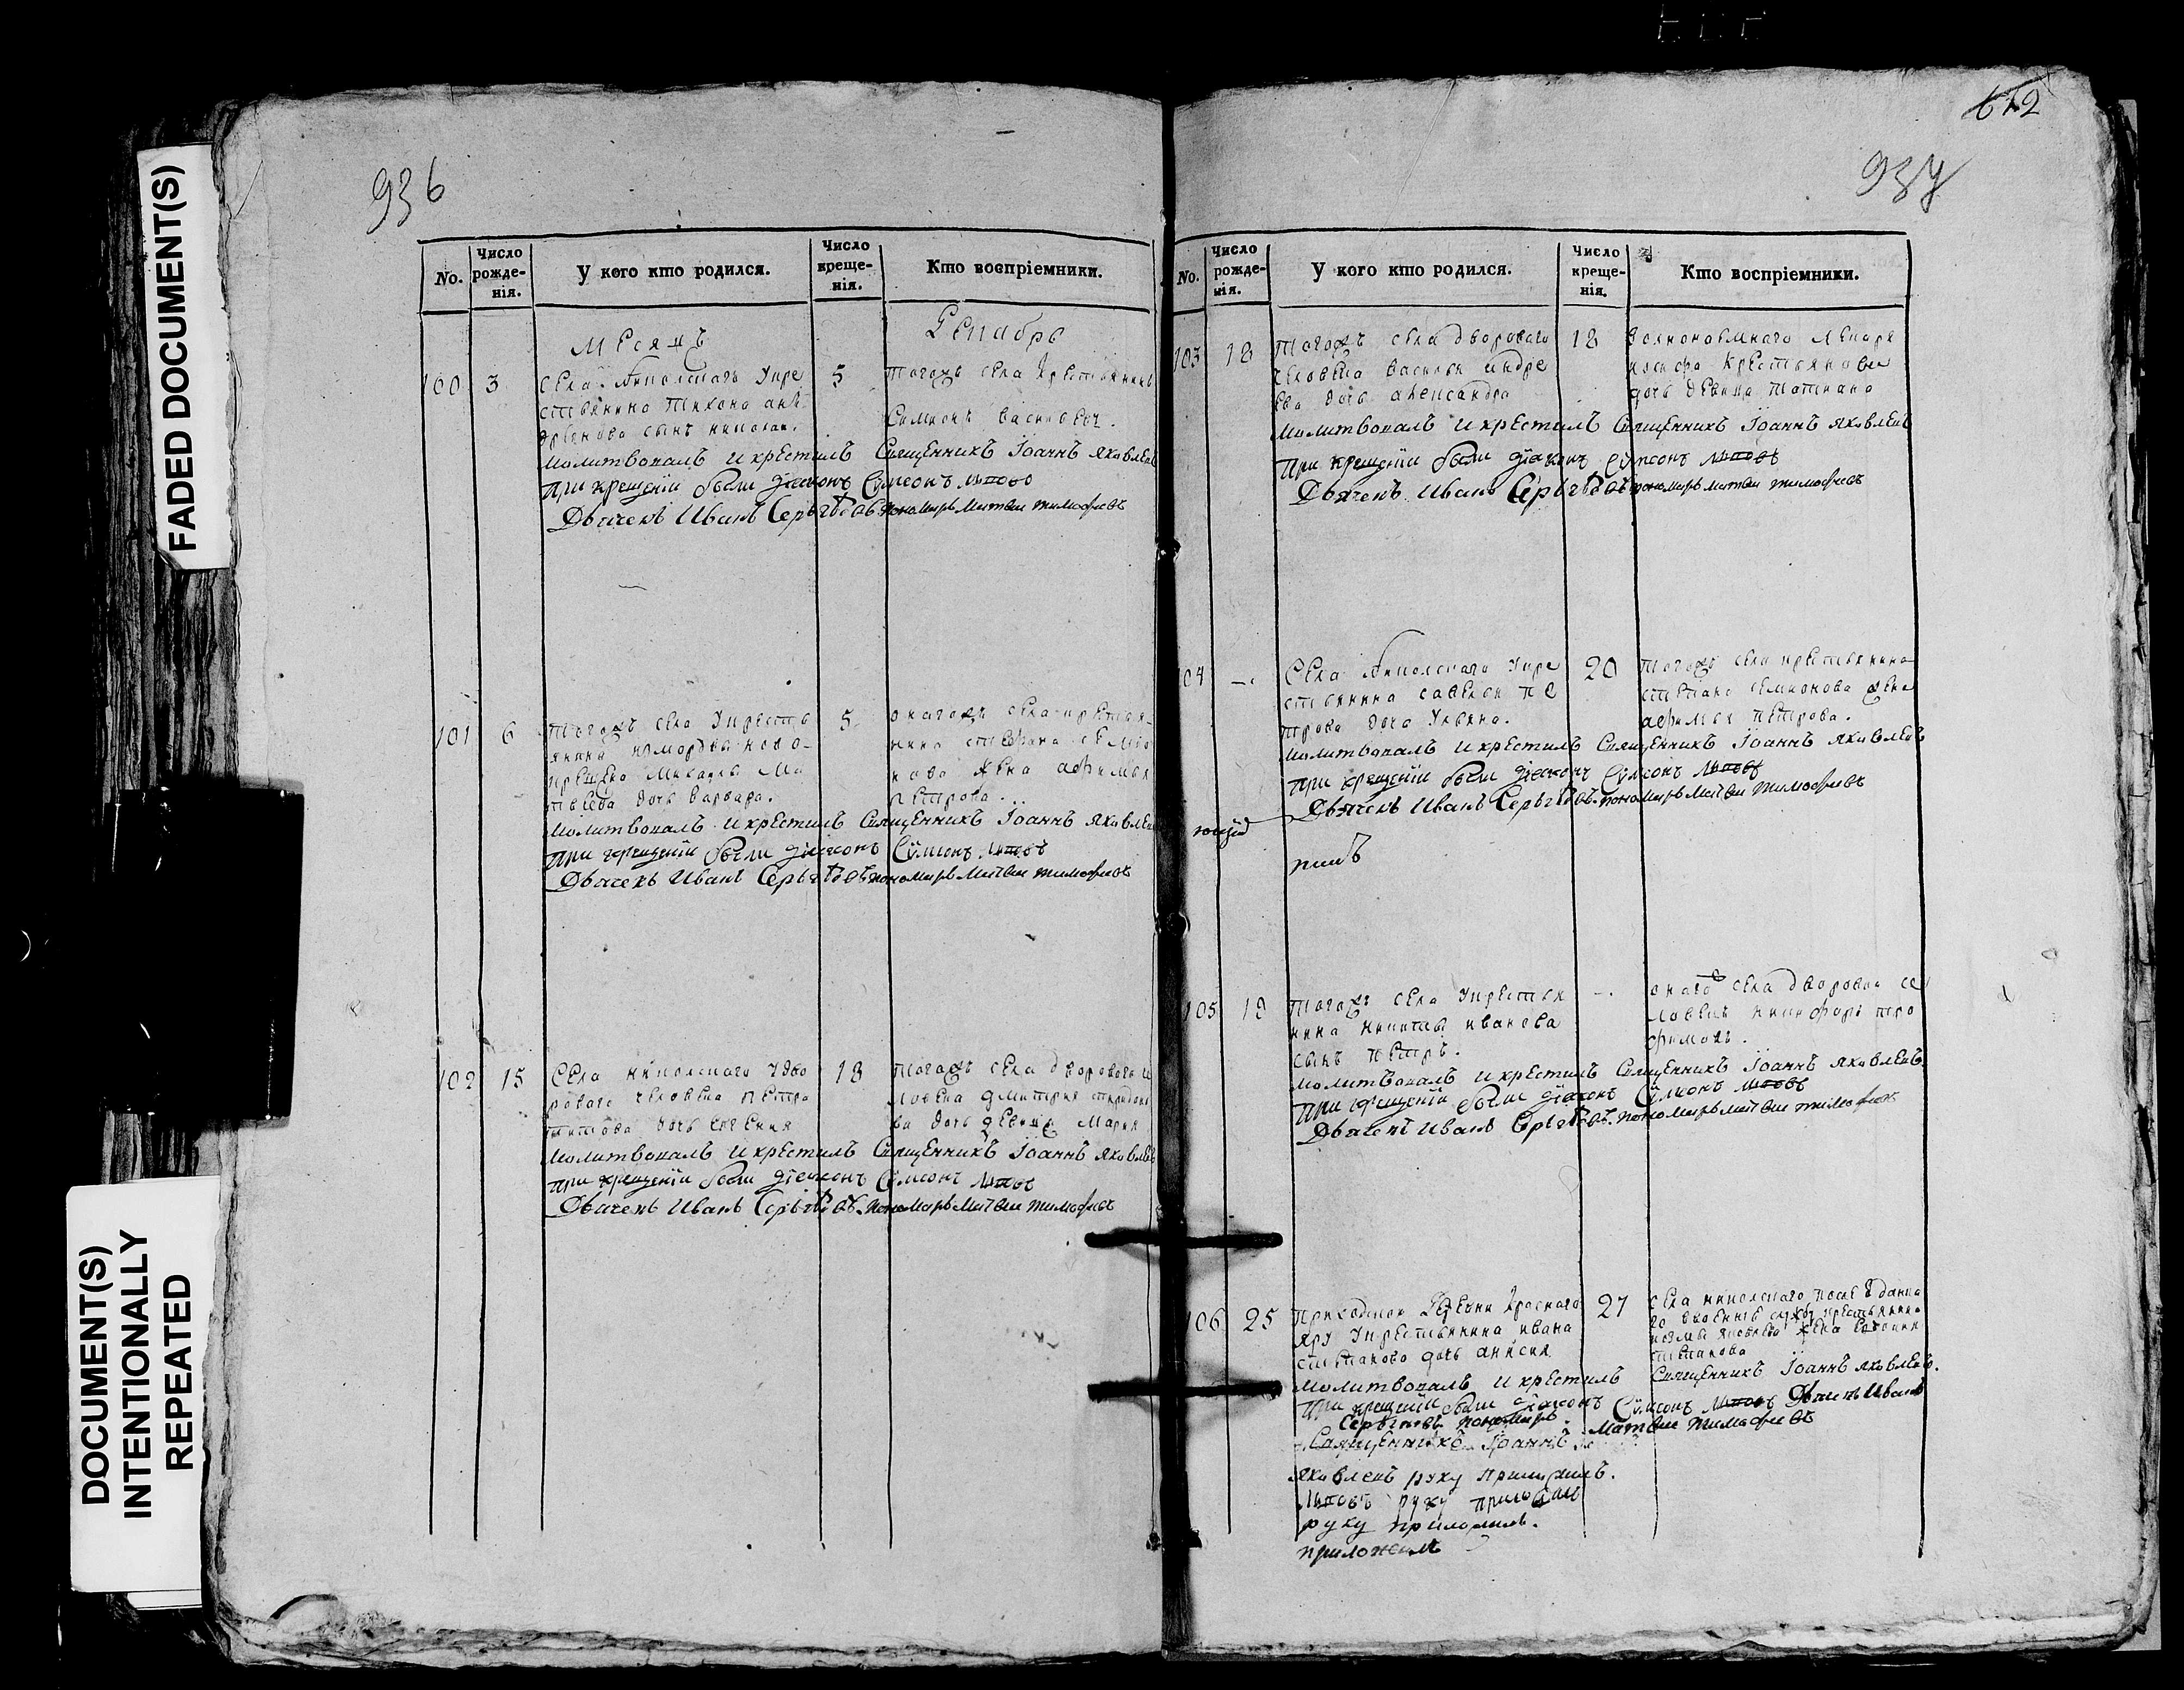 FADED DOCUMENT(S)
DOCUMENT(S)
INTENTIONALLY
REPEATED
936
No.
Число рожде-нія.
У кого кто родился.
Число креще-нія.
Кто воспріемники.
Месяцъ
Декабрь
100 3
села Никольскаго У кре
стьянина Тихона ан
дреянова сынъ николай.
5
тогожъ села крестьянинъ
Симионъ васильевъ.
молитвовалъ и крестилъ Священникъ Іоаннъ яковлевъ
При крещеніи были діаконъ Сѵмеонъ
Дьячекъ Иванъ Сергѣевъ пономарь Матвеи тимофеевъ
101 6
тогожъ села У крестъ
янина измордвы ново-
крещена михаилы ма
твеева дочь варвара.
5
онагожъ села крестья-
нина стефана семио
нова жена афимья
петрова.
молитвовалъ и крестилъ Священникъ Іоаннъ яковлев
При крещеніи были діаконъ Сѵмеонъ
Дьячекъ Иванъ Сергѣевъ пономарь Матвеи тимофеевъ
102 15
села никольскаго У дво
роваго человека петра
титова дочь евгения
18
тогожъ села двороваго че
ловека дмитрия спиридоно
ва дочь девица Мария
молитвовалъ и крестилъ Священникъ Іоаннъ яковлевъ
При крещеніи были діаконъ Сѵмеонъ
Дьячекъ Иванъ Сергѣевъ пономарь Матвеи тимофеевъ
612
937
No.
Число рожде-нія.
У кого кто родился.
Число креще-нія.
Кто воспріемники.
103 18
тогожъ села двороваго
человека василья андре
ева дочь александра
18
лекаря
дочь девица татиана
молитвовалъ и крестилъ Священникъ Іоаннъ яковлевъ
При крещеніи были діаконъ Сѵмеонъ
Дьячекъ Иванъ Сергѣевъ пономарь Матвеи тимофеевъ
104 —
села Никольскаго У кре
стьянина савелья пе
трова дочь Ульяна.
20
тогожъ села крестьянина
степана семионова жена
афимья петрова.
молитвовалъ и крестилъ Священникъ Іоаннъ яковлевъ
При крещеніи были діаконъ Сѵмеонъ
Дьячекъ Иванъ Сергѣевъ пономарь Матвеи тимофеевъ
105 19
тогожъ села У крестья
нина никиты иванова
сынъ петръ.
—
онаго села дворовои че
ловекъ никифоръ тро
фимовъ.
молитвовалъ и крестилъ Священникъ Іоаннъ яковлевъ.
При крещеніи были діаконъ Сѵмеонъ
Дьячекъ Иванъ Сергѣевъ пономарь матвеи тимофеевъ
106 25
Приходскои деревни Краснаго
яру У крестьянина ивана
степанова дочь анисия
27
села никольскаго
крестьянина
козмы яковлева жена
степанова
молитвовалъ и крестилъ Священникъ Іоаннъ яковлевъ.
При крещеніи были діаконъ Сѵмеонъ Дьячекъ Иванъ
Сергѣевъ пономарь Матвеи тимофеевъ
Священникъ Іоаннъ
яковлевъ руку приложилъ.
руку приложилъ
руку приложилъ.
приложилъ